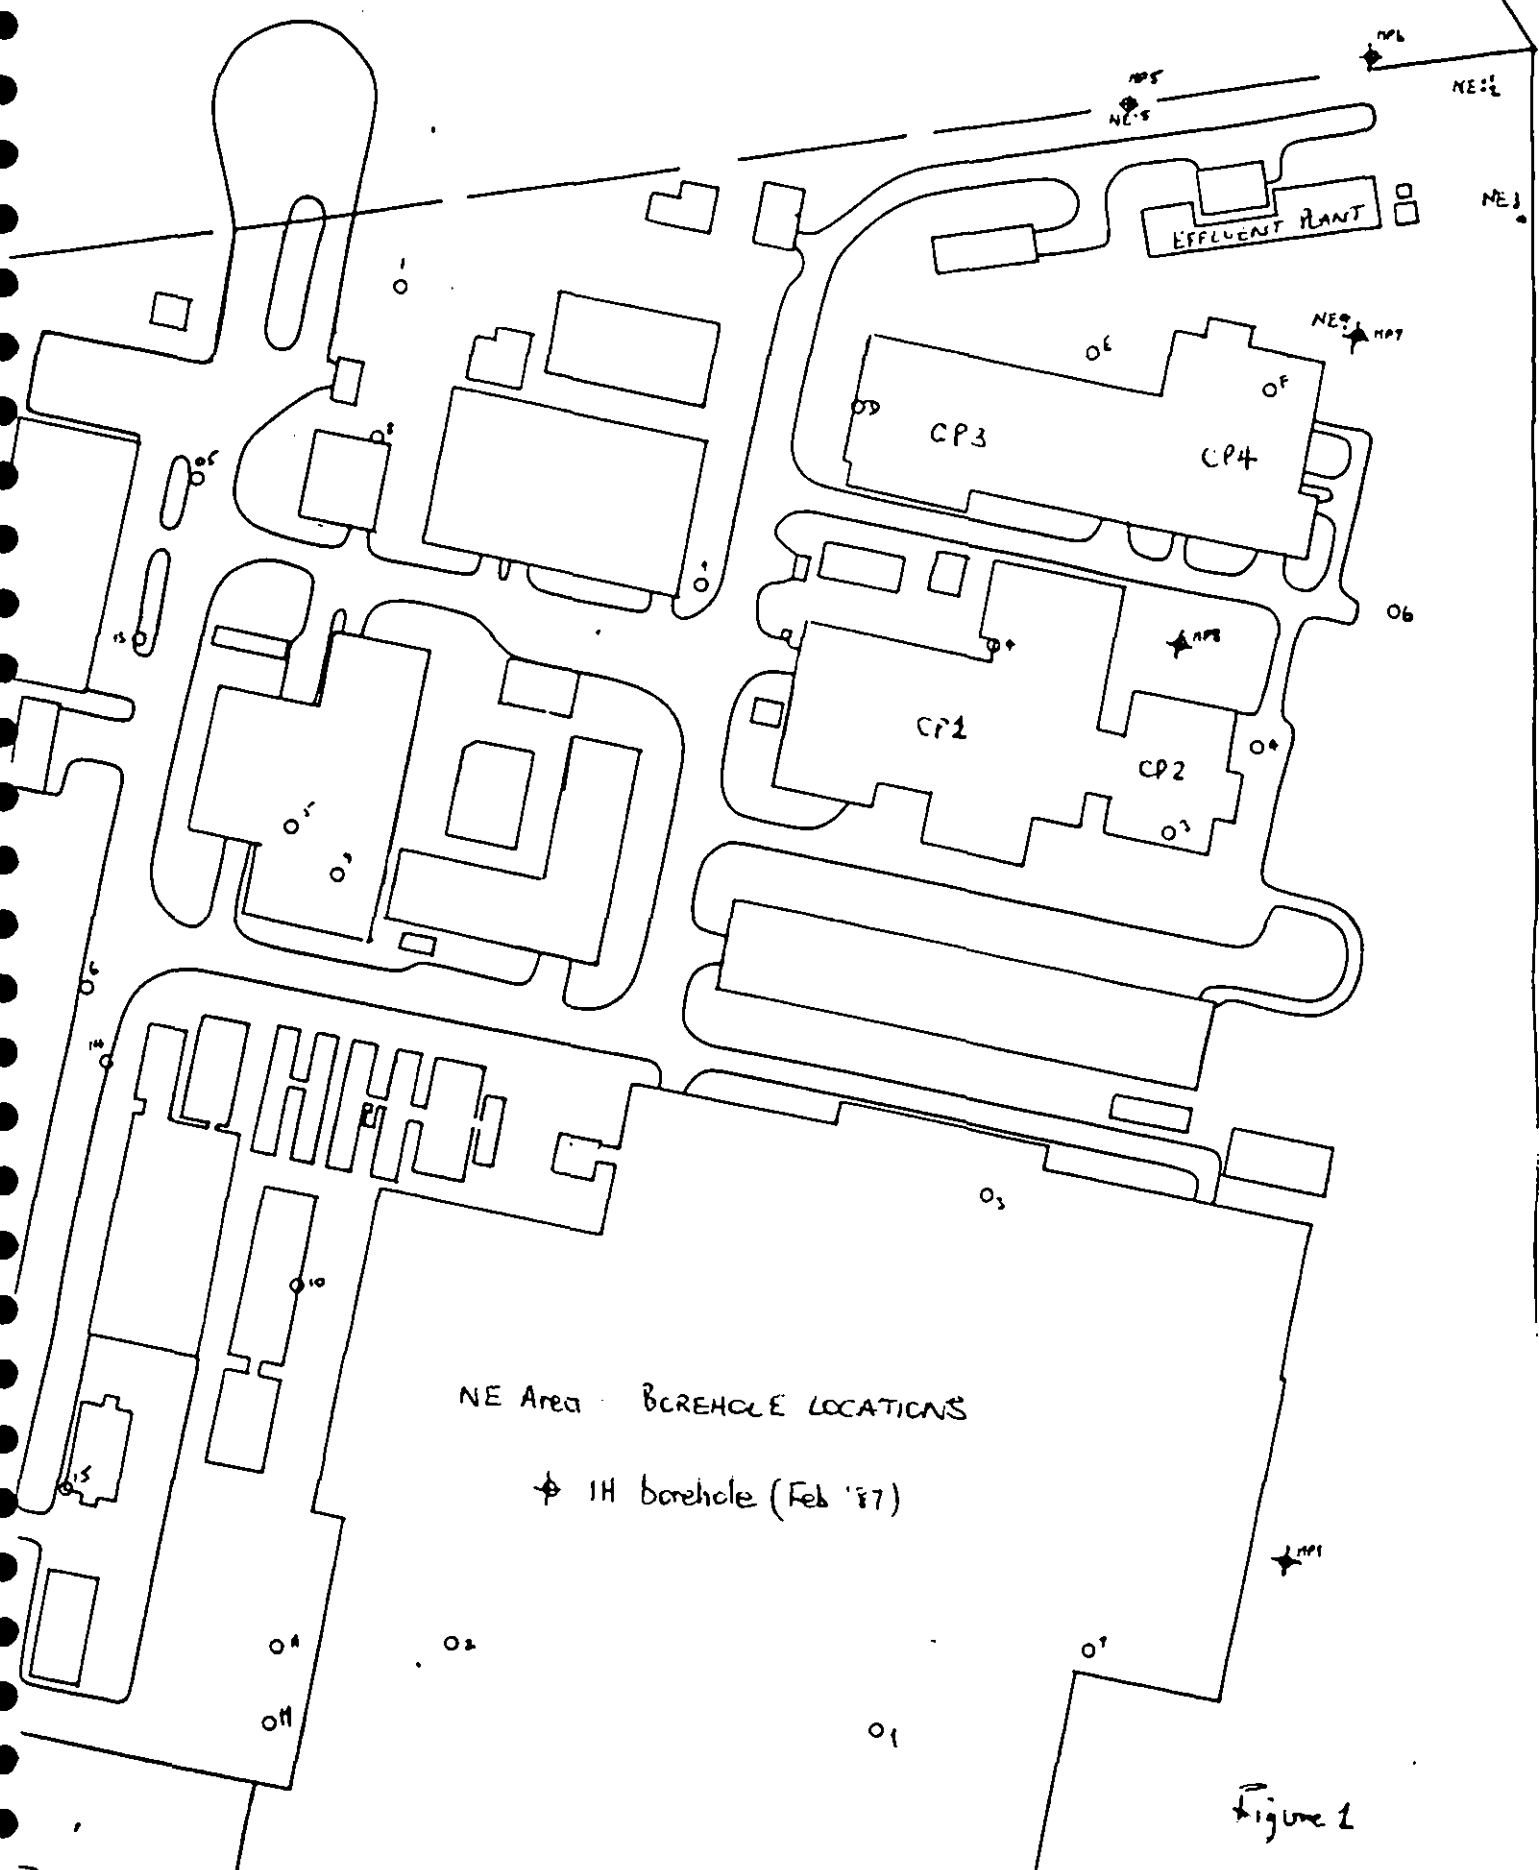 MP6
MP5
NE:2
NE:5
NE3
EFFLUENT PLANT
1
NE9
MP7
E
F
D
8
CP3
CP4
05
9
6
13
4
MP8
CP1
4
CP2
5
3
9
6
14
3
10
NE Area BOREHOLE LOCATIONS
15
IH borehole (Feb '87)
MP1
A
2
7
H
1
Figure 1